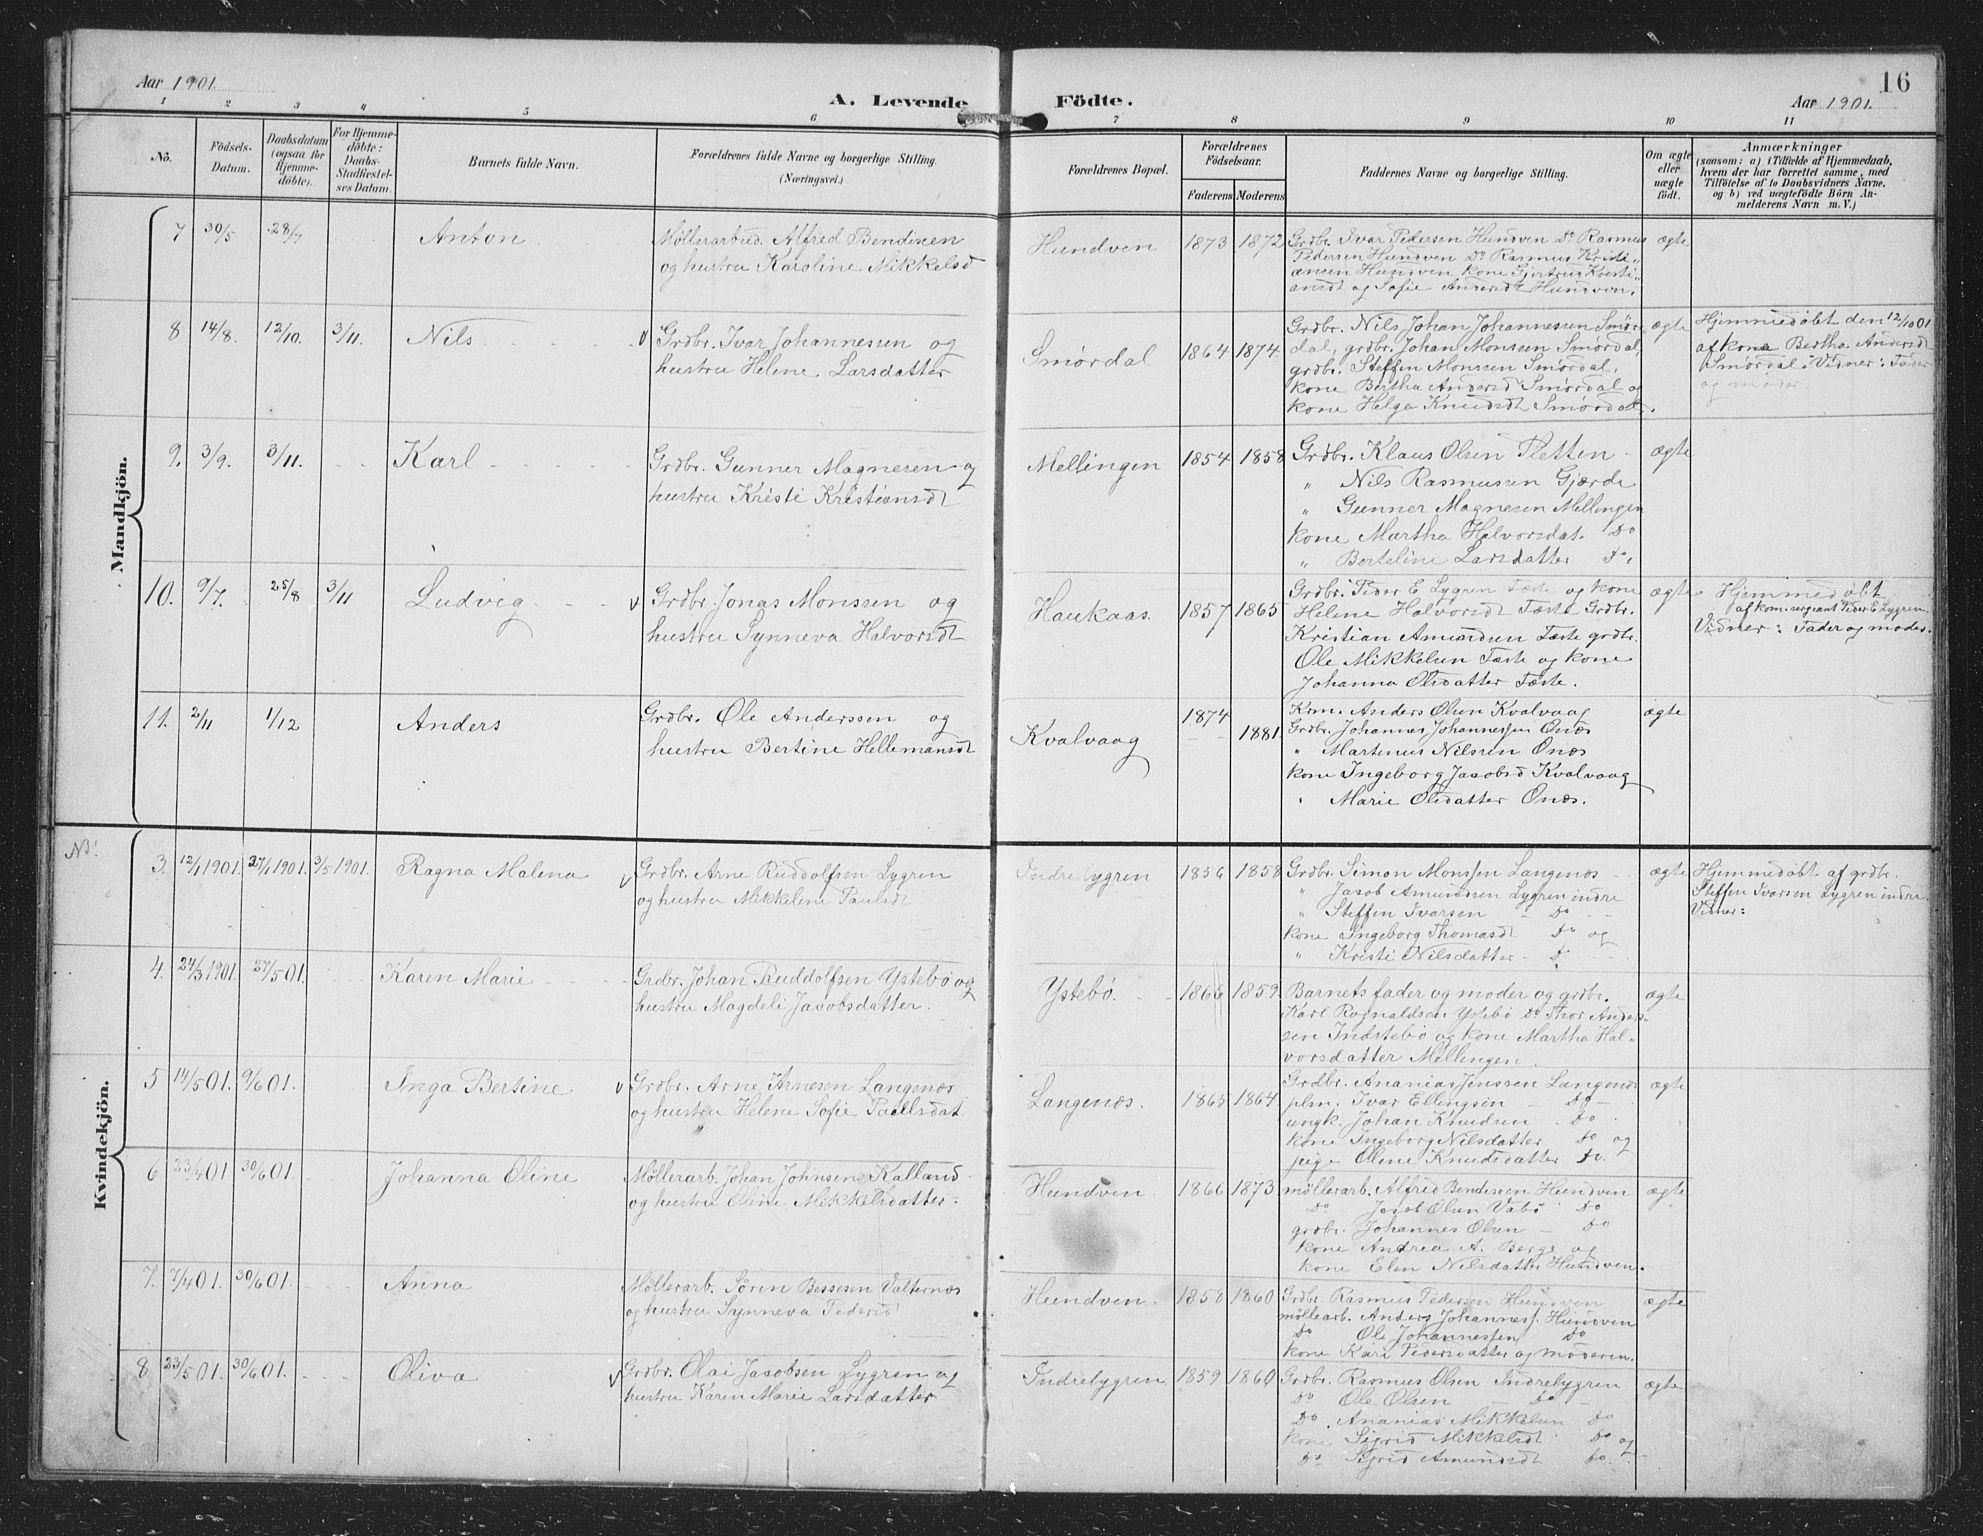 Aar 1901.
A. Levende Födte.
Aar 1901.
16
1 2 3 4 5 6 7 8 9 10 11
No.
Födsels-Datum.
Daabsdatum (ogsaa for Hjemme-döbte).
For Hjemme-döbte: Daabs-Stadfæstel-ses Datum.
Barnets fulde Navn.
Forældrenes fulde Navne og borgerlige Stilling.
(Næringsvei.)
Forældrenes Bopæl.
Forældrenes Födselsaar.
Faderens Moderens
Faddernes Navne og borgerlige Stilling.
Om ægte eller uægte födt.
Anmærkninger
(saasom: a) i Tilfælde af Hjemmedaab,
hvem der har forrettet samme, med
Tilföielse af to Daabsvidners Navne.
og b) ved uægtefödte Börn An-
melderens Navn m. V.)
Mandkjön.
7 30/5 28/7 Anton
Møllerarbud. Alfred Bendixen
og hustru Karoline Mikkelsd
Hundven 1873 1872
Grdbr. Ivar Pedersen Hundven Do Rasmus
Pedersen Hundven Do Rasmus Kristi-
ansen Hundven kone Gjertrud Kristi-
ansdt og Sofie Andersdt Hundven.
ægte
8 14/8 12/10. 3/11 Nils
Grdbr. Ivar Johannessen og
hustru Helene Larsdatter
Smørdal 1864 1874.
Grdbr. Nils Johan Johannessen Smør-
dal, grdbr. Johan Monssen Smørdal,
grdbr. Steffen Monssen Smørdal,
kone Bertha Andersd Smørdal og
kone Helga Knudsdt Smørdal.
ægte
Hjemmedøbt den 12/10 01
af kone Bertha Andersdt
Smørdal. Vidner: Fader
og moder
9. 3/9. 3/11. Karl
Grdbr. Gunner Magnesen og
hustru Kristi Kristiansdt
Mellingen 1854 1858
Grdbr. Klaus Olsen Fletten
„ Nils Rasmussen Gjærde
„ Gunner Magnesen Mellingen
kone Martha Halvorsdat. Do
„ Berteline Larsdatter Do.
ægte
10. 9/7. 25/8 3/11 Ludvig
Grdbr. Jonas Monssen og
hustru Synneva Halvorsdt
Haukaas. 1857 1865
Grdbr. Peder E Lygren Fæste og kone
Helene Halvorsdt Fæste Grdbr.
Kristian Amundsen Fæste grdbr.
Ole Mikkelsen Fæste og kone
Johanna Olsdatter Fæste.
ægte
Hjemmedøbt
af kom. sergeant Peder E Lygren.
Vidner: Fader og moder.
11. 2/11 1/12 Anders
Grdbr. Ole Anderssen og
hustru Bertine Hellemansdt
Kvalvaag 1874 1881.
Krm. Anders Olsen Kvalvaag
Grdbr. Johannes Johannessen Onæs
„ Martinus Nilsen Onæs
kone Ingeborg Jacobsd Kvalvaag
„ Marie Olsdatter Onæs.
ægte
Kvindekjön.
NB!
3. 12/1 1901. 27/1 1901. 3/5 1901. Ragna Malena
Grdbr. Arne Ruddolfsen Lygren
og hustru Mikkeline Paulsdt
Indre lygren 1856 1858
Grdbr. Simon Monssen Langenæs
„ Jacob Amundsen Lygren indre
„ Steffen Ivarsen Do
kone Ingeborg Thomasdt Do og
„ Kristi Nilsdatter D.
ægte
Hjemmedøbt af grdbr.
Steffen Ivarsen Lygren indre
Vidner:
4. 24/3 1901. 27/5 01. Karen Marie
Grdbr. Johan Ruddolfsen Ystebø og
hustru Magdeli Jacobsdatter.
Ystebø. 1866 1859.
Barnets fader og moder og grdbr.
Karl Ragnaldsen Ystebø Do Thor Anders-
sen Indstebø og kone Martha Hal-
vorsdatter Mellingen
ægte
5 14/5 01. 9/6 01. Inga Bertine
Grdbr. Arne Arnesen Langenæs
og hustru Helene Sofie Paulsdat
Langenæs. 1865 1864
Grdbr. Ananias Jenssen Langenæs
plm. Ivar Ellingsen Do
ungk. Johan Knudsen Do
kone Ingeborg Nilsdatter Do og
pige Oline Knudsdatter Do.
ægte
6 23/4 01 30/6 01. Johanna Oline
Møllerarb. Johan Johnsen Kalland
og hustru Oline Mikkelsdatter
Hundven 1866 1873
møllerarb. Alfred Bendixen Hundven
Do Jacob Olsen Vabø Do
grdbr. Johannes Olsen Do
kone Andrea A. Berge og
kone Elen Nilsdatter Hundven.
ægte
7. 7/4 01. 30/6 01. Anna
Møllerarb. Søren Bessesen Valternæs
og hustru Synneva Pedersdt
Hundven. 1858 1860
Grdbr. Rasmus Pedersen Hundven
møllearb. Anders Johannesf. Hundven
Do Ole Johannessen Do
kone Kari Pedersdatter og moderen.
ægte
8. 23/5 01. 30/6 01. Oliva
Grdbr. Olai Jacobsen Lygren og
hustru Karen Marie Larsdatter
Indrelygren 1859 1860
Grdbr. Rasmus Olsen Indrelygren
Do Ole Olsen Do
Do. Ananias Mikkelsen Do
kone Sigrid Mikkelsdt Do og
Do Sigrid Amundsdt Do.
ægte